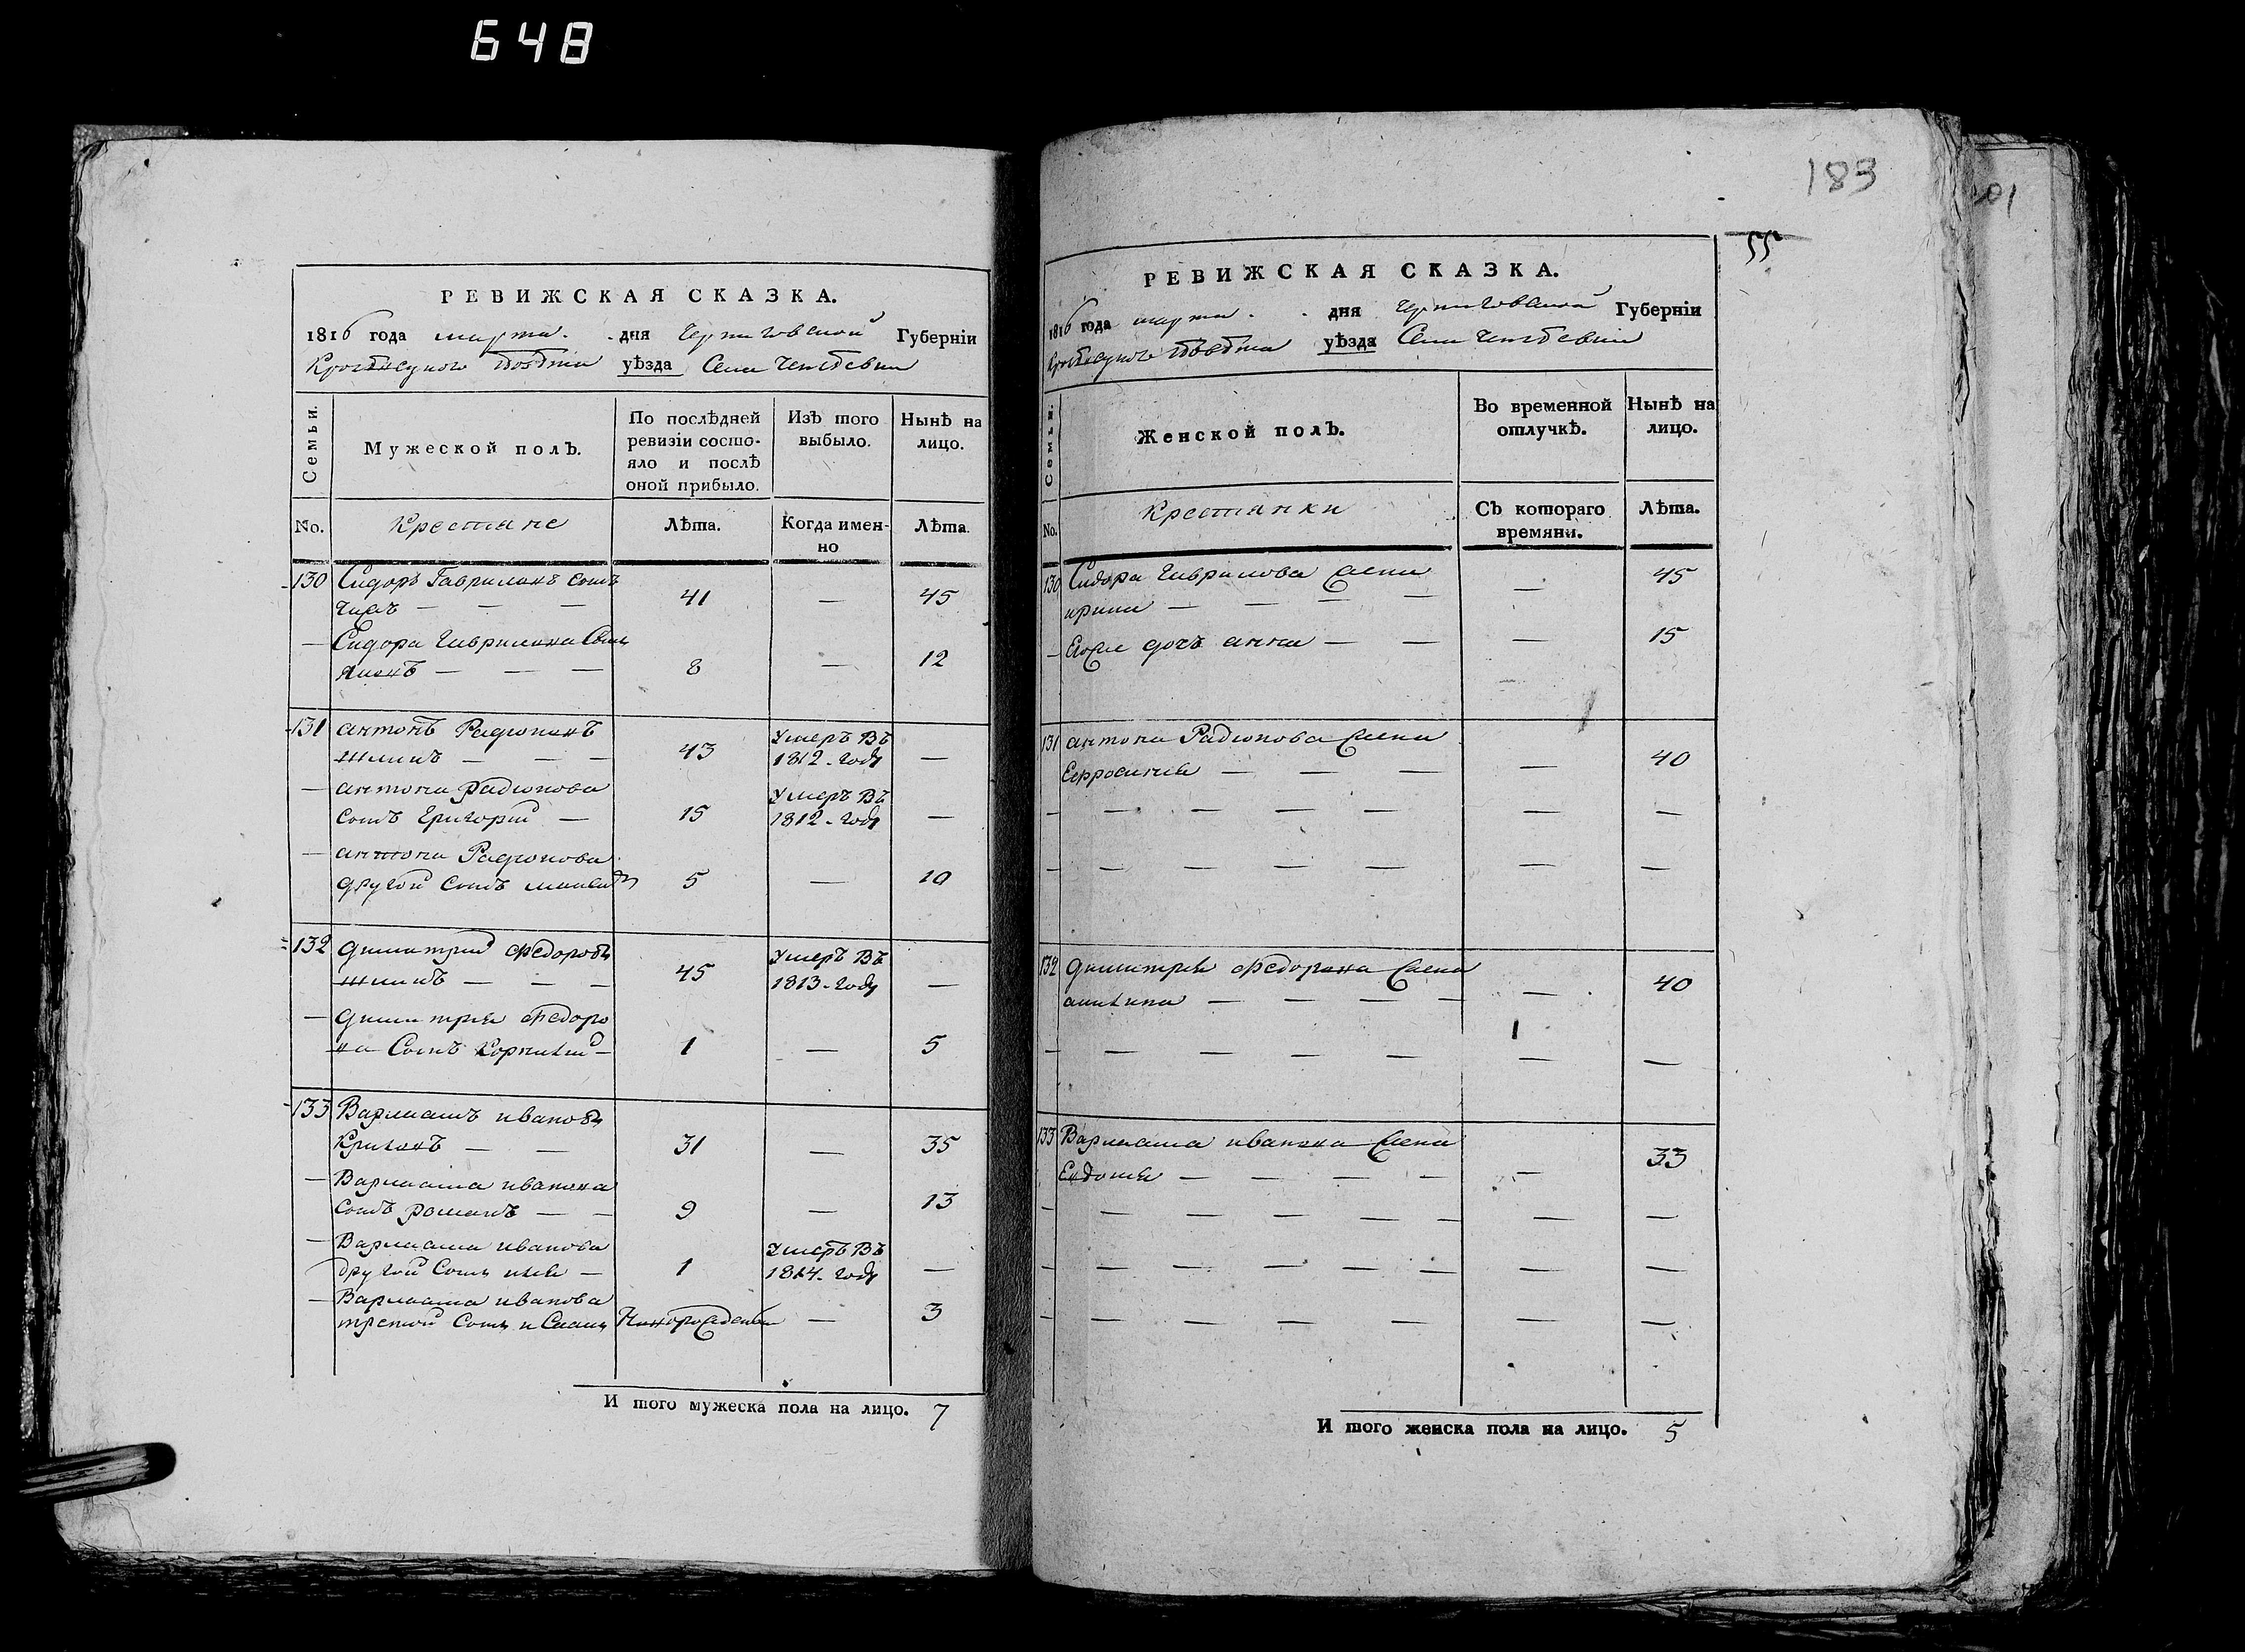 648
РЕВИЖСКАЯ СКАЗКА.
1816 года марта. дня Черниговской Губерніи
Кролевецкого повѣта уѣзда Села
Семьи.
Мужеской полъ.
По послѣдней ревизіи состо-
яло и послѣ
оной прибыло.
Изъ того
выбыло.
Нынѣ на
лицо.
No.
Крестяне
Лѣта.
Когда имен-
но
Лѣта.
130 Сидоръ Гавриловъ сынъ
41 — 45
— Сидора Гаврилова Сынъ
8 — 12
131 антонъ Радионовъ
43 Умеръ Въ 1812-году —
— антона Радионова
сынъ Григорий — 15 Умеръ Въ 1812-году —
— антона Радионова
другой сынъ 5 — 10
132 димитрий Федоровъ
45 Умеръ Въ 1813-году —
— димитрия Федоро
ва Сынъ Корнилий — 1 — 5
133 Варлаамъ ивановъ
31 — 35
— Варлаама иванова
сынъ романъ — — 9 — 13
— Варлаама иванова
другой Сынъ илія — 1 Умеръ Въ 1814-году —
— Варлаама иванова
третий Сынъ Новорожденъ — 3
И того мужеска пола на лицо. 7
183
55
РЕВИЖСКАЯ СКАЗКА.
1816 года марта. дня Черниговской Губерніи
Кролевецкого повѣта уѣзда Села
Семьи.
Женской полъ.
Во временной
отлучкѣ.
Нынѣ на
лицо.
No.
Крестянки
Съ котораго
времяни.
Лѣта.
130 Сидора Гаврилова Жена
ирина — — — — — 45
— Егоже дочь анна — — — 15
131 антона Радионова Жена
Ефросиния — — — — 40
132 димитрия Федорова Жена
акилина — — — — — 40
133 Варлаама иванова Жена
Евдокия — — — — — 33
И того женска пола на лицо. 5